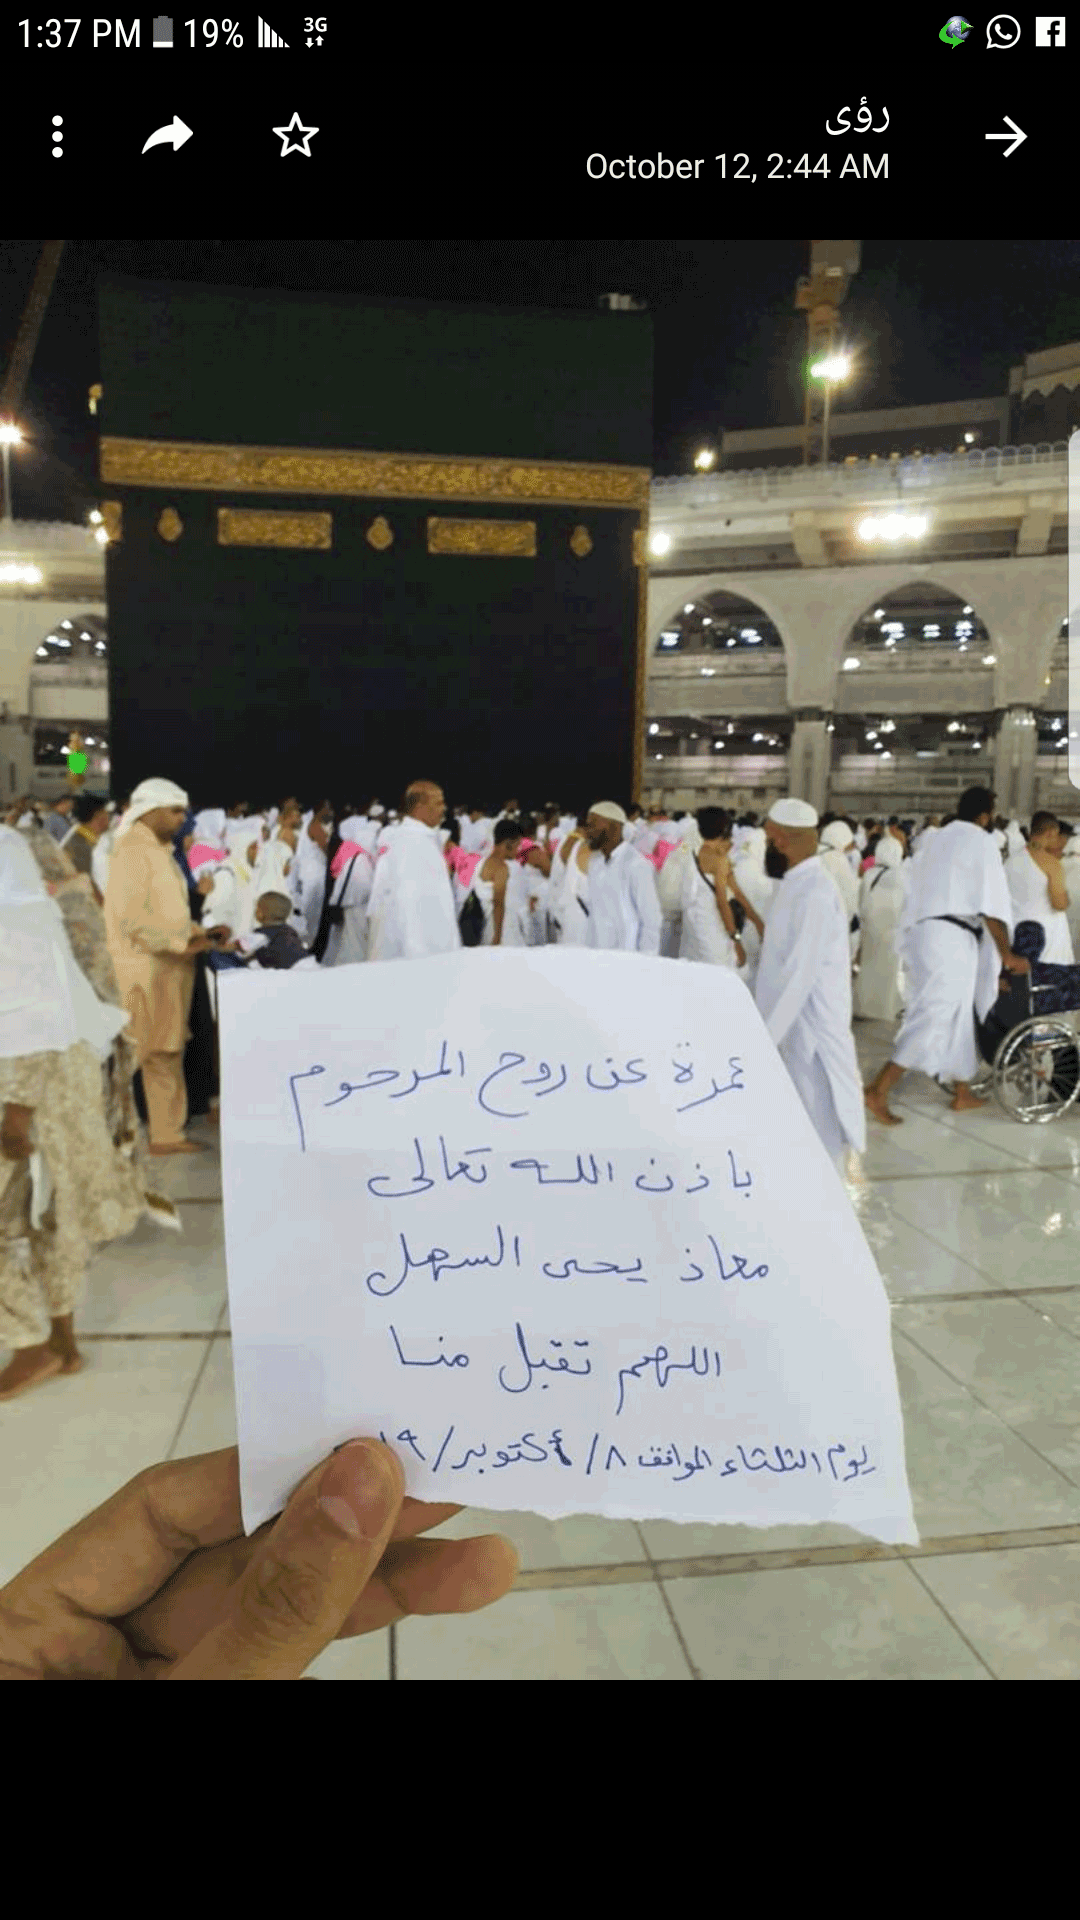 1:37 PM 19% 3G
رؤى
October 12, 2:44 AM
عمرة عن روح المرحوم
باذن الله تعالى
معاذ يحى السهل
اللهم تقبل منا
يوم الثلثاء الموافق ٨/أكتوبر/١٩